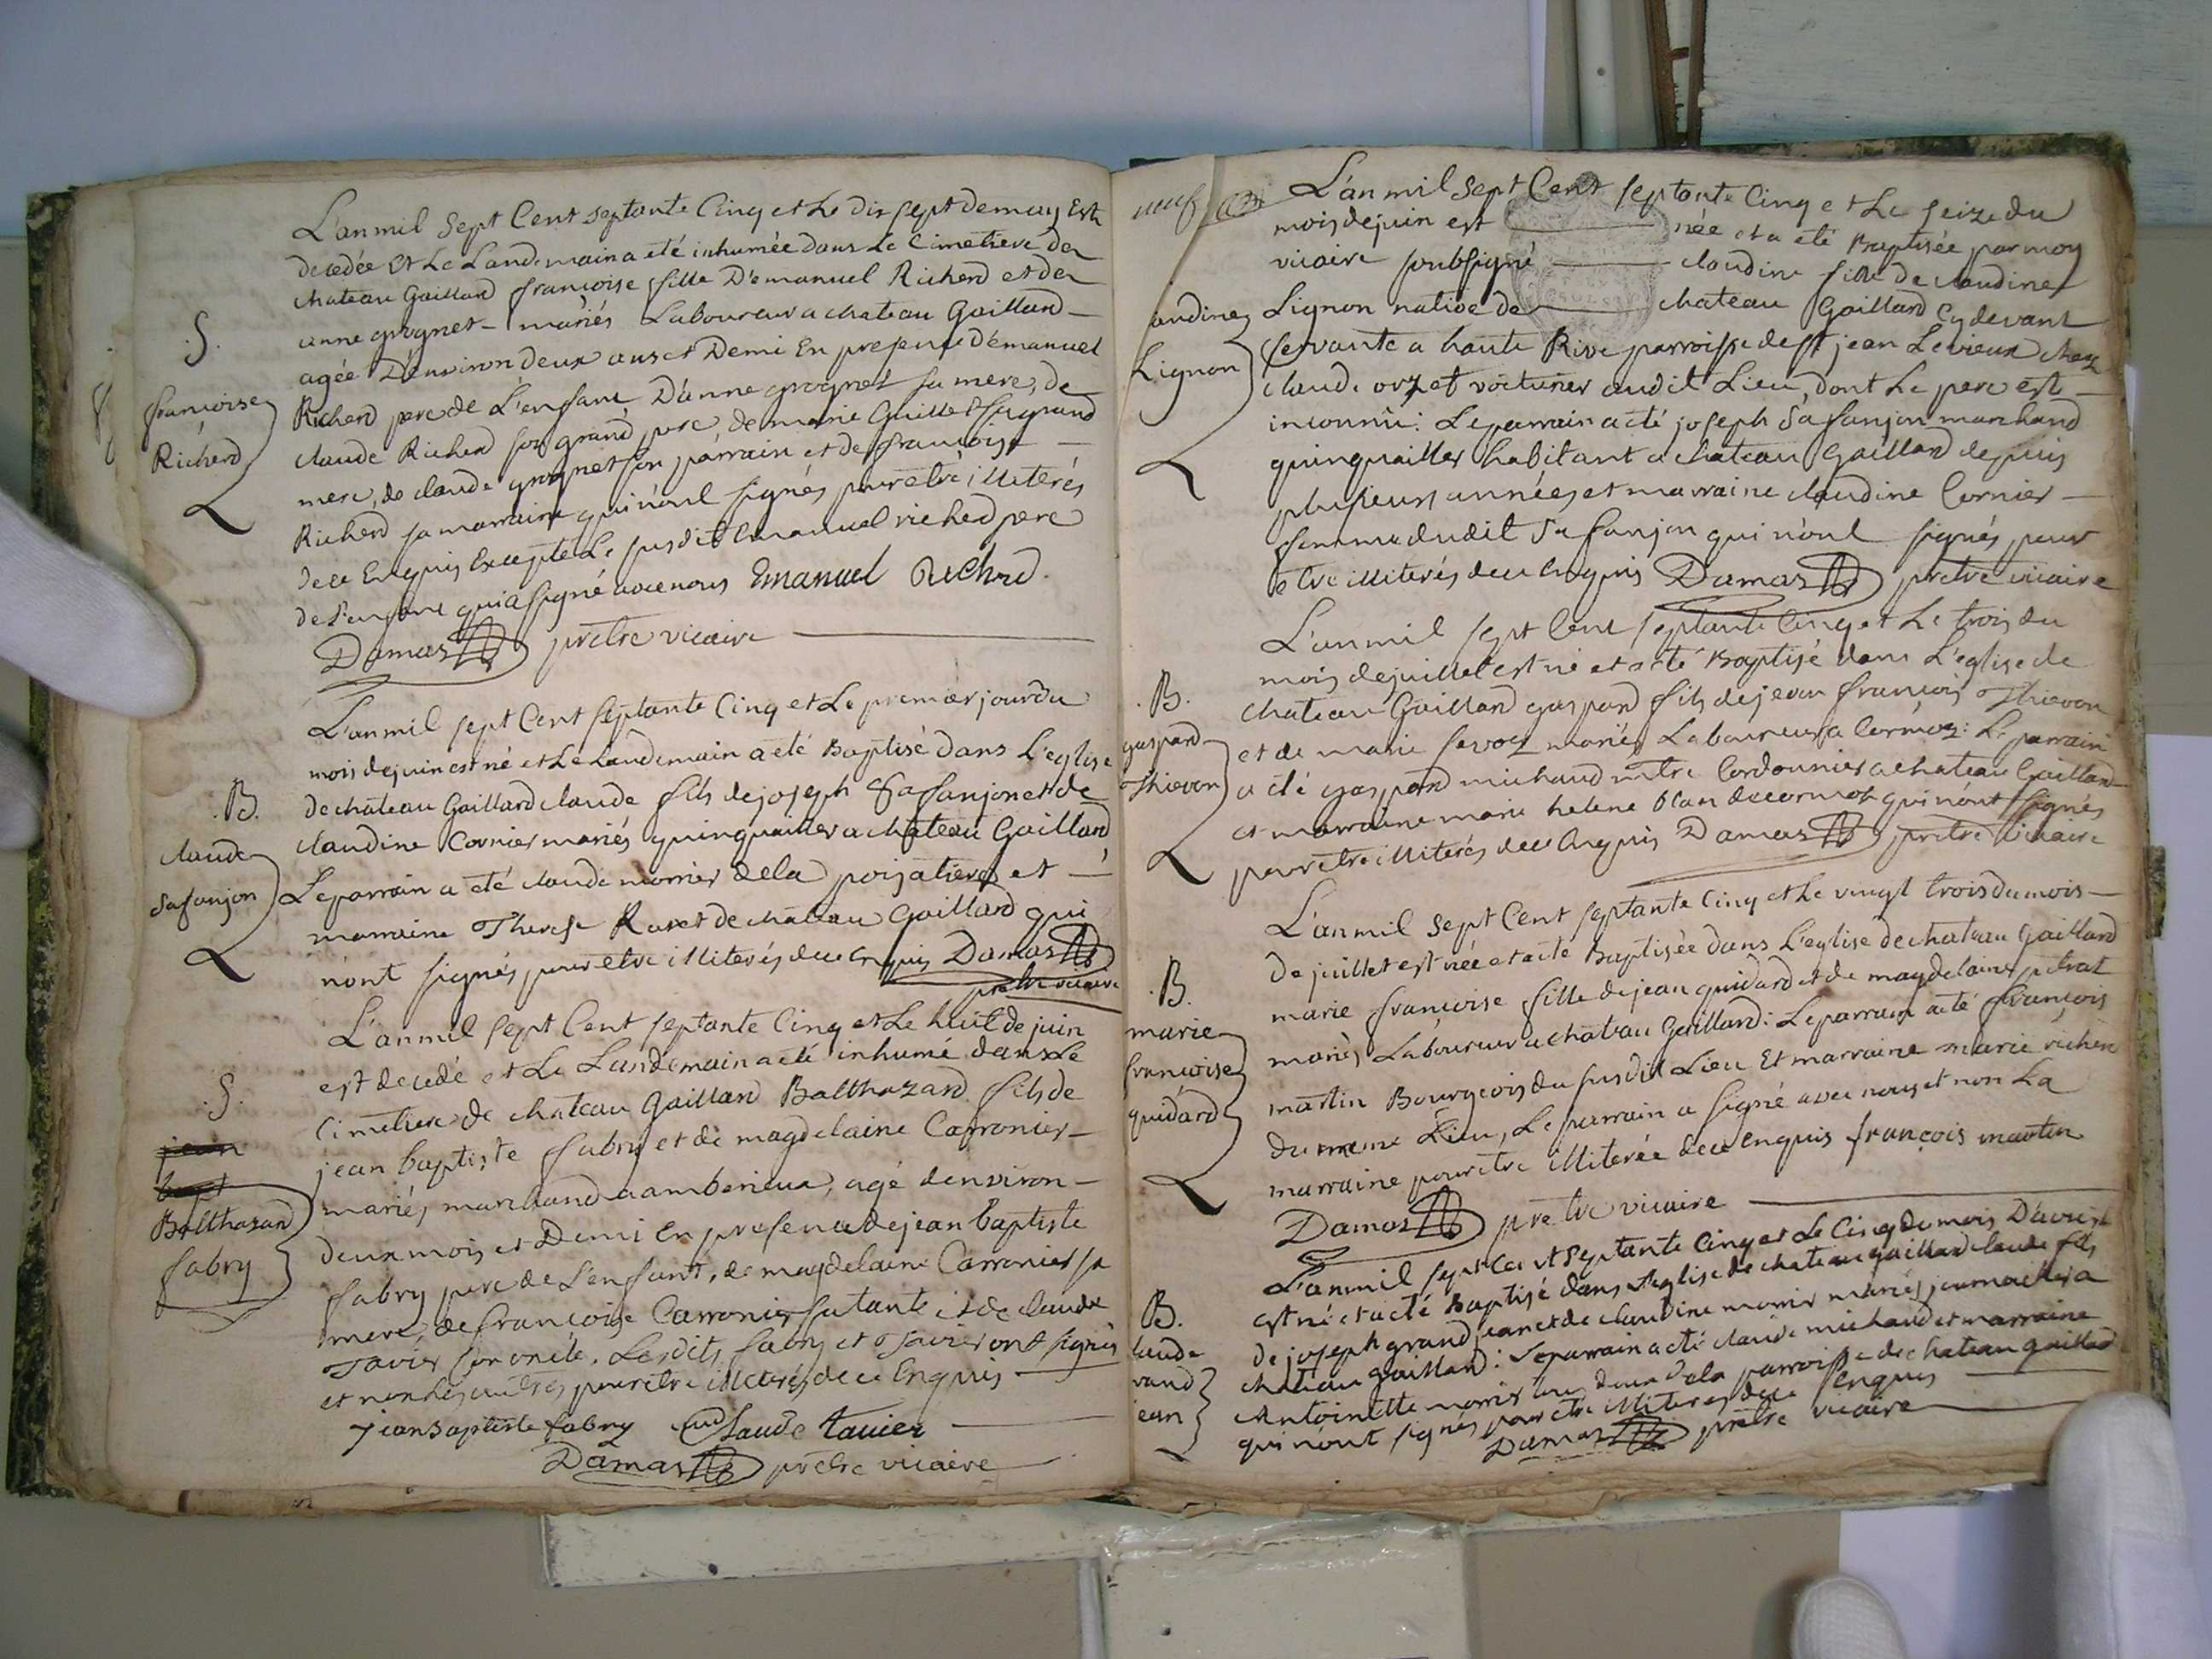 L'an mil Sept Cent septante Cinq et le dix sept de may Est
decedée Et Le Landemain a eté inhumée dans Le Cimetiere de
chateau Gaillard françoise fille D'emanuel Richerd et de
anne grognet - mariés Laboureur a chateau Gaillard
.S.
agée D'environ deux ans et Demi En presence d'emanuel
françoise
Richerd
Richerd pere de L'enfant D'anne grognet sa mere, de
claude Richerd son grand pere, de marie Guillet sa grand
mere, de claude grognet son parrain et de françoise
Richerd sa marraine qui n'ont signés pour etre illiterés
de ce Enquis Excepté Le susdit Emanuel richerd pere
de l'enfant qui a signé avec nous Emanuel Richerd
Damas prêtre vicaire
L'an mil sept Cent septante Cinq et Le premier jour du
mois de juin est né et Le Landemain a eté Baptisé dans L'eglise
.B.
claude
Safanjon
de chateau Gaillard claude fils de joseph Safanjon et de
claudine Cornier mariés quinquailler a chateau Gaillard,
Le parrain a eté claude morrier de la poizatiere et
marraine Therese Ravet de chateau Gaillard qui
n'ont signés pour etre illiterés de ce Enquis Damas
prêtre vicaire
L'an mil sept Cent septante Cinq et Le huit de juin
est decedé et Le Landemain a eté inhumé dans Le
.S.
jean
bapt
Balthazard
fabry
Cimetiere de chateau Gaillard Balthazard fils de
jean baptiste fabry et de magdelaine Carronier
mariés marchand a amberieux, agé d'environ
deux mois et Demi En presence de jean baptiste
fabry pere de L'enfant, de magdelaine Carronier sa
mere, de françoise Carronier sa tante et de claude
Tavier son oncle. Lesdits fabry et Tavier ont signés
et non Les autres pour etre illiterés de ce Enquis
jean Baptiste fabry Claude tavier
Damas prêtre vicaire
neuf
L'an mil Sept Cent septante Cinq et Le seize du
mois de juin est née et a eté Baptisée par moy
vicaire soubsigné claudine fille de claudine
andine
Lignon
Lignon native de chateau Gaillard Cy devant
servante a haute Rive parroisse de st jean Le vieux chez
claude orset voiturier audit Lieu, dont Le pere est
inconnu: Le parrain a eté joseph Safanjon marchand
quinquailler habitant a chateau Gaillard depuis
plusieurs années et marraine claudine Cornier
femme dudit Safanjon qui n'ont signés pour
etre illiterés de ce Enquis Damas prêtre vicaire
L'an mil sept Cent septante Cinq et Le trois du
mois de juillet est né et a eté Baptisé dans L'eglise de
.B.
gaspard
Thievon
chateau Gaillard gaspard fils de jean françois Thievon
et de marie savoy mariés Laboureur a Cormoz: Le parrain
a eté gaspard michaud mtre Cordonnier a chateau Gaillard
et marraine marie helene blan de cormoz qui n'ont signés
pour etre illiterés de ce Enquis Damas prêtre vicaire
L'an mil Sept Cent septante Cinq et Le vingt trois du mois
de juillet est née et a eté Baptisée dans L'eglise de chateau Gaillard
.B.
marie
françoise
guidard
marie françoise fille de jean guidard et de magdelaine petrat
mariés Laboureur a chateau Gaillard: Le parrain a eté françois
martin Bourgeois du susdit Lieu Et marraine marie richerd
du meme Lieu, Le parrain a signé avec nous et non La
marraine pour etre illiterée de ce Enquis françois martin
Damas prêtre vicaire
L'an mil sept Cent Septante Cinq et Le Cinq du mois D'aoust
est né et a eté Baptisé dans L'eglise de chateau gaillard claude fils
B.
laude
rand
jean
de joseph grand jean et de claudine morrier mariés journailler a
chateau gaillard: Le parrain a eté claude michaud et marraine
Antoinette morrier tous deux de la parroisse de chateau gaillard
qui n'ont signés pour etre illiterés de ce Enquis
Damas prêtre vicaire